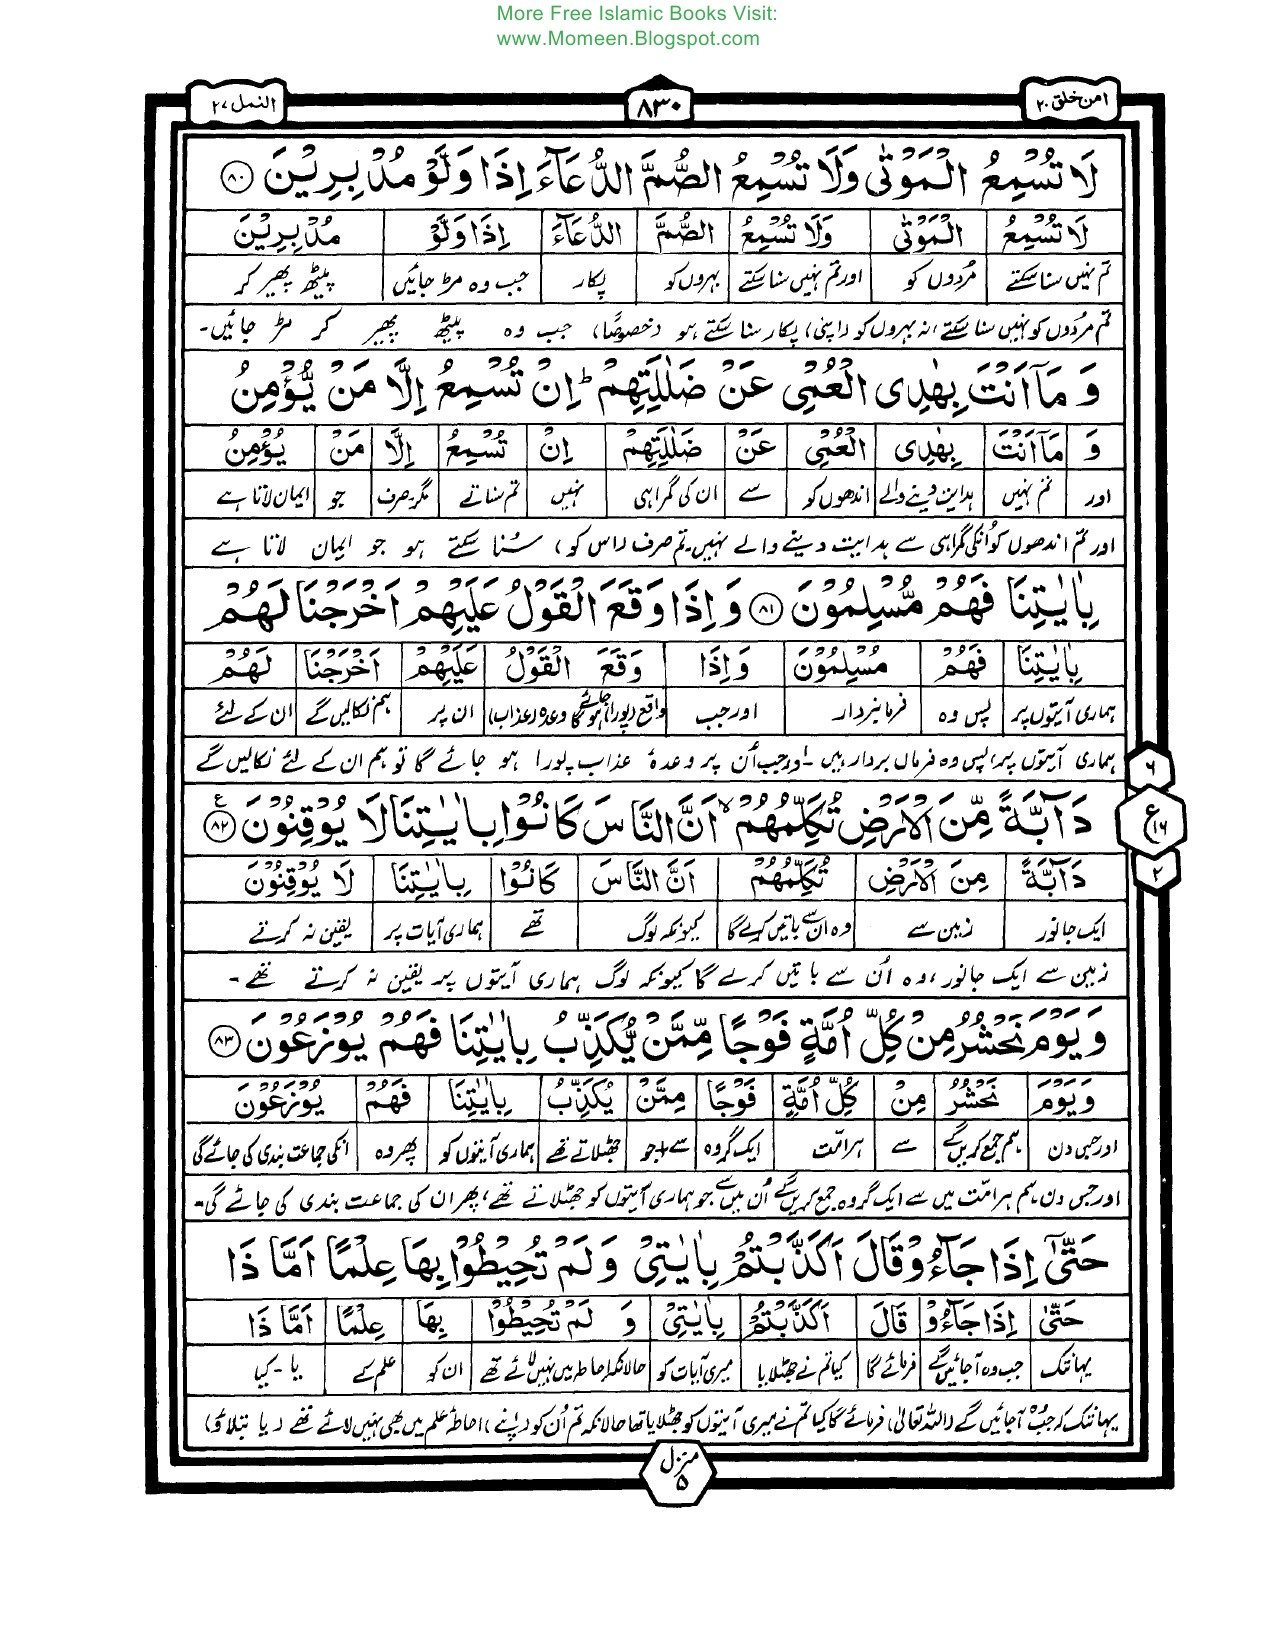 More Free Islamic Books Visit:
www.Momeen.Blogspot.com
امن خلق ۲۰
۸۳۰
النمل ۲۷
لَا تُسْمِعُ الْمَوْتٰى وَلَا تُسْمِعُ الصُّمَّ الدُّعَآءَ اِذَا وَلَّوْ مُدْبِرِيْنَ ۸۰
لَا تُسْمِعُ الْمَوْتٰى وَلَا تُسْمِعُ الصُّمَّ الدُّعَآءَ اِذَا وَلَّوْ مُدْبِرِيْنَ
تم نہیں سنا سکتے مُردوں کو اور تم نہیں سنا سکتے بہروں کو پکار جب وہ مڑ جائیں پیٹھ پھیر کر
تم مُردوں کو نہیں سنا سکتے، نہ بہروں کو (اپنی) پکار سنا سکتے ہو (خصوصًا) جب وہ پیٹھ پھیر کر مڑ جائیں۔
وَ مَآ اَنْتَ بِهٰدِى الْعُمْىِ عَنْ ضَلٰلَتِهِمْ ؕ اِنْ تُسْمِعُ اِلَّا مَنْ يُّؤْمِنُ
وَ مَآ اَنْتَ بِهٰدِى الْعُمْىِ عَنْ ضَلٰلَتِهِمْ اِنْ تُسْمِعُ اِلَّا مَنْ يُؤْمِنُ
اور تم نہیں ہدایت دینے والے اندھوں کو سے ان کی گمراہی نہیں تم سناتے مگر۔صرف جو ایمان لاتا ہے
اور تم اندھوں کو اُنکی گمراہی سے ہدایت دینے والے نہیں۔ تم صرف (اس کو) سُنا سکتے ہو جو ایمان لاتا ہے
بِاٰيٰتِنَا فَهُمْ مُّسْلِمُوْنَ ۸۱ وَ اِذَا وَقَعَ الْقَوْلُ عَلَيْهِمْ اَخْرَجْنَا لَهُمْ
بِاٰيٰتِنَا فَهُمْ مُسْلِمُوْنَ وَ اِذَا وَقَعَ الْقَوْلُ عَلَيْهِمْ اَخْرَجْنَا لَهُمْ
ہماری آیتوں پر پس وہ فرمانبردار اور جب واقع (پورا) ہو جائے گا وعدہ (عذاب) ان پر ہم نکالیں گے ان کے لئے
ہماری آیتوں پر، پس وہ فرماں بردار ہیں۔ اور جب اُن پر وعدۂ عذاب پورا ہو جائے گا تو ہم ان کے لئے نکالیں گے
۶
دَآبَّةً مِّنَ الْاَرْضِ تُكَلِّمُهُمْ ۙ اَنَّ النَّاسَ كَانُوْا بِاٰيٰتِنَا لَا يُوْقِنُوْنَ ۸۲ ع
ع ۱۶
دَآبَّةً مِنَ الْاَرْضِ تُكَلِّمُهُمْ اَنَّ النَّاسَ كَانُوْا بِاٰيٰتِنَا لَا يُوْقِنُوْنَ
۲
ایک جانور زمین سے وہ ان سے باتیں کریگا کیونکہ لوگ تھے ہماری آیات پر یقین نہ کرتے
زمین سے ایک جانور، وہ اُن سے باتیں کرے گا کیونکہ لوگ ہماری آیتوں پر یقین نہ کرتے تھے۔
وَ يَوْمَ نَحْشُرُ مِنْ كُلِّ اُمَّةٍ فَوْجًا مِّمَّنْ يُّكَذِّبُ بِاٰيٰتِنَا فَهُمْ يُوْزَعُوْنَ ۸۳
وَ يَوْمَ نَحْشُرُ مِنْ كُلِّ اُمَّةٍ فَوْجًا مِمَّنْ يُكَذِّبُ بِاٰيٰتِنَا فَهُمْ يُوْزَعُوْنَ
اور جس دن ہم جمع کریں گے سے ہر امّت ایک گروہ سے+جو جھٹلاتے تھے ہماری آیتوں کو پھر وہ انکی جماعت بندی کی جائے گی
اور جس دن ہم ہر امّت میں سے ایک گروہ جمع کریں گے اُن میں سے جو ہماری آیتوں کو جھٹلاتے تھے، پھر ان کی جماعت بندی کی جائے گی۔
حَتّٰۤى اِذَا جَآءُوْ قَالَ اَكَذَّبْتُمْ بِاٰيٰتِىْ وَ لَمْ تُحِيْطُوْا بِهَا عِلْمًا اَمَّا ذَا
حَتّٰى اِذَا جَآءُوْ قَالَ اَكَذَّبْتُمْ بِاٰيٰتِىْ وَ لَمْ تُحِيْطُوْا بِهَا عِلْمًا اَمَّا ذَا
یہانتک جب وہ آ جائیں گے فرمائے گا کیا تم نے جھٹلایا میری آیات کو حالانکہ احاطہ میں نہیں لائے تھے ان کو علم کے یا۔کیا
یہانتک کہ جب وہ آ جائیں گے (اللہ تعالٰی) فرمائے گا کیا تم نے میری آیتوں کو جھٹلایا تھا حالانکہ تم اُن کو (اپنے) احاطۂ علم میں بھی نہیں لائے تھے (یا بتلاؤ)
منزل ۵